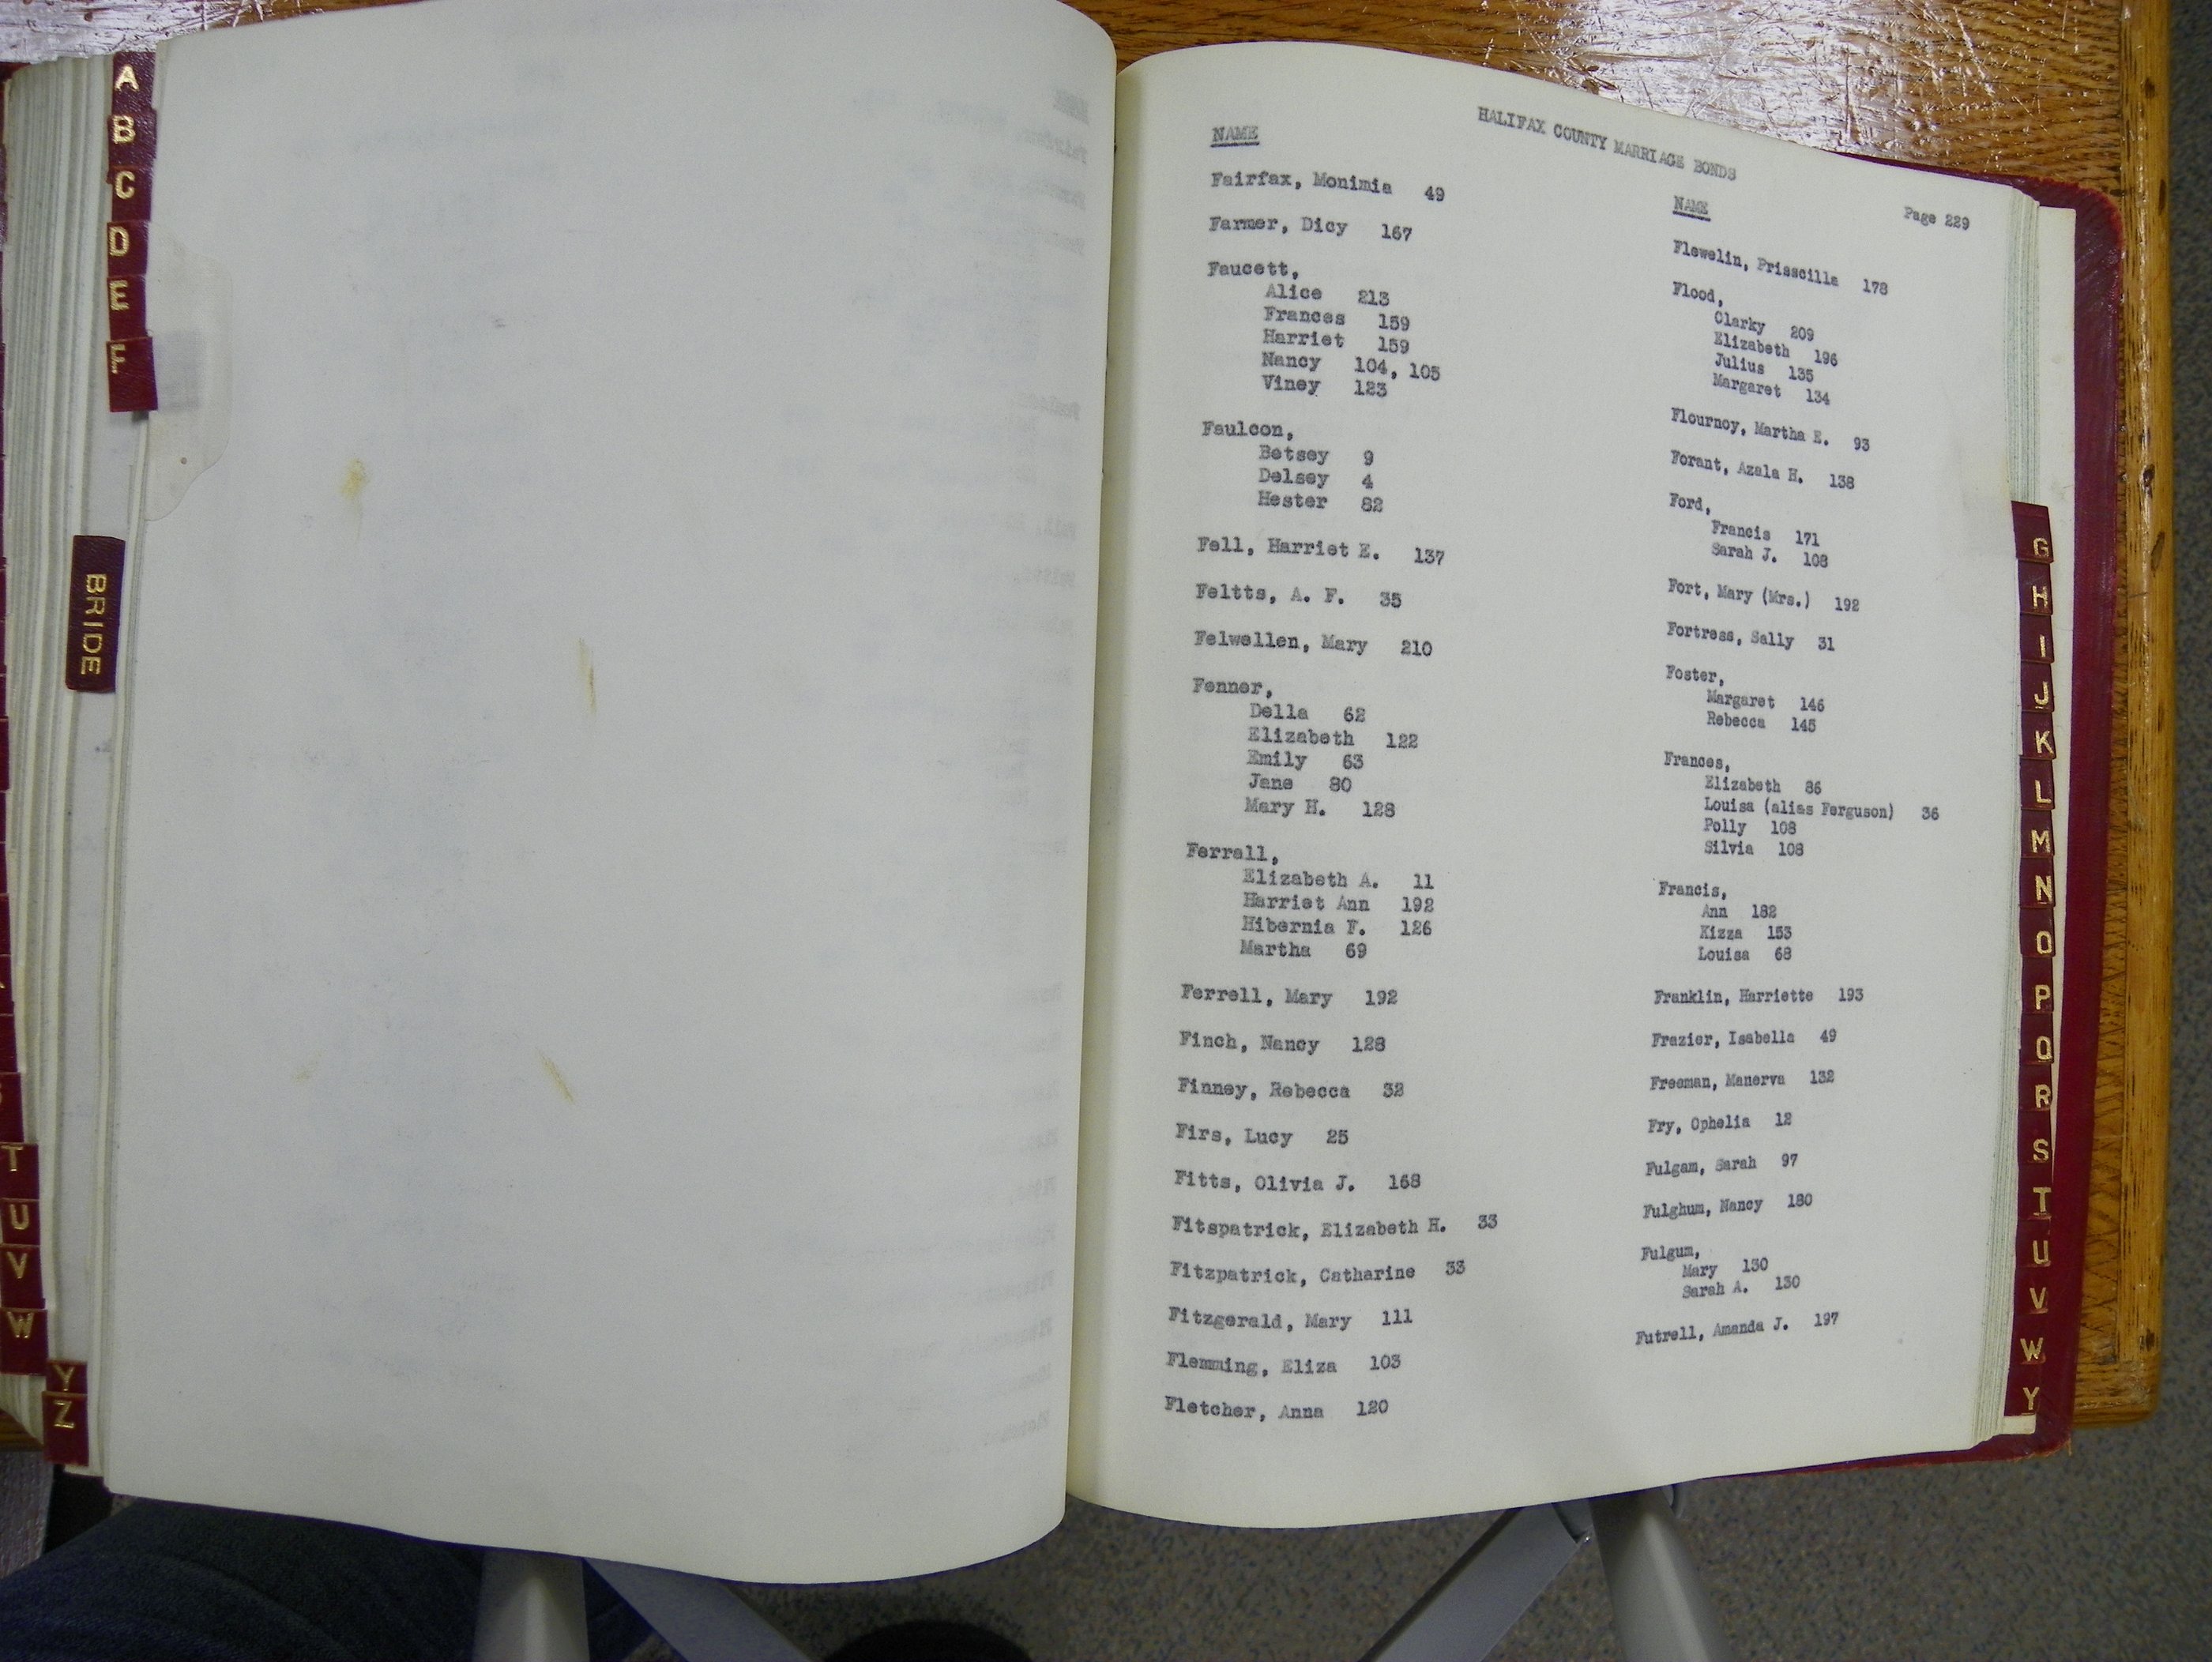 A
B
C
D
E
F
BRIDE
T
U
V
W
Y
Z
HALIFAX COUNTY MARRIAGE BONDS
Page 229
NAME
Fairfax, Monimia 49
Farmer, Dicy 167
Faucett,
Alice 213
Frances 159
Harriet 159
Nancy 104, 105
Viney 123
Faulcon,
Betsey 9
Delsey 4
Hester 82
Fell, Harriet E. 137
Feltts, A. F. 35
Felwellen, Mary 210
Fenner,
Della 62
Elizabeth 122
Emily 63
Jane 80
Mary H. 128
Ferrall,
Elizabeth A. 11
Harriet Ann 192
Hibernia F. 126
Martha 69
Ferrell, Mary 192
Finch, Nancy 128
Finney, Rebecca 32
Firs, Lucy 25
Fitts, Olivia J. 168
Fitspatrick, Elizabeth H. 33
Fitzpatrick, Catharine 33
Fitzgerald, Mary 111
Flemming, Eliza 103
Fletcher, Anna 120
NAME
Flewelin, Prisscilla 178
Flood,
Clarky 209
Elizabeth 196
Julius 135
Margaret 134
Flournoy, Martha E. 93
Forant, Azala H. 138
Ford,
Francis 171
Sarah J. 108
Fort, Mary (Mrs.) 192
Fortress, Sally 31
Foster,
Margaret 146
Rebecca 145
Frances,
Elizabeth 86
Louisa (alias Ferguson) 36
Polly 108
Silvia 108
Francis,
Ann 182
Kizza 153
Louisa 68
Franklin, Harriette 193
Frazier, Isabella 49
Freeman, Manerva 132
Fry, Ophelia 12
Fulgam, Sarah 97
Fulghum, Nancy 180
Fulgum,
Mary 130
Sarah A. 130
Futrell, Amanda J. 197
G
H
I
J
K
L
M
N
O
P
Q
R
S
T
U
V
W
Y